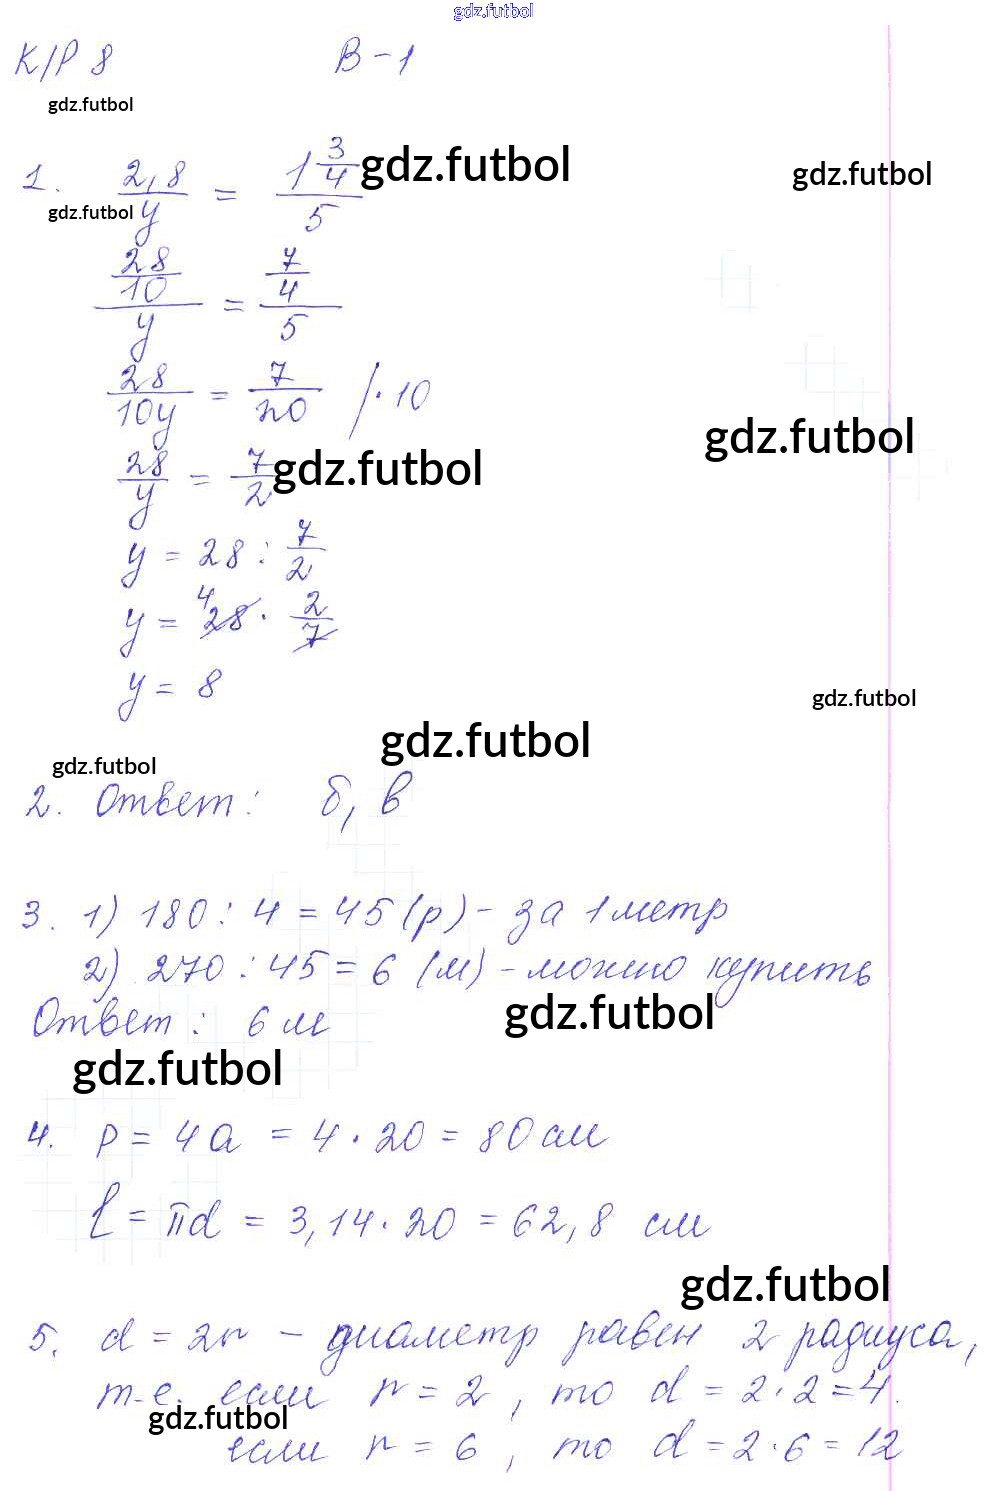 gdz.futbol
К/Р 8 В-1
gdz.futbol
1. 2,8/y = 1 3/4 / 5 gdz.futbol gdz.futbol
gdz.futbol
28/10 / y = 7/4 / 5
28/10y = 7/20 /·10
gdz.futbol
28/y = 7/2 gdz.futbol
y = 28 : 7/2
y = 28 4 · 2/7
y = 8
gdz.futbol
gdz.futbol
gdz.futbol
2. Ответ: б, в
3. 1) 180 : 4 = 45 (р) - за 1 метр
2) 270 : 45 = 6 (м) - можно купить
Ответ: 6 м gdz.futbol
gdz.futbol
4. P = 4a = 4 · 20 = 80 см
l = πd = 3,14 · 20 = 62,8 см
gdz.futbol
5. d = 2r - диаметр равен 2 радиуса,
т.е. если r = 2, то d = 2·2 = 4.
gdz.futbol
если r = 6, то d = 2·6 = 12